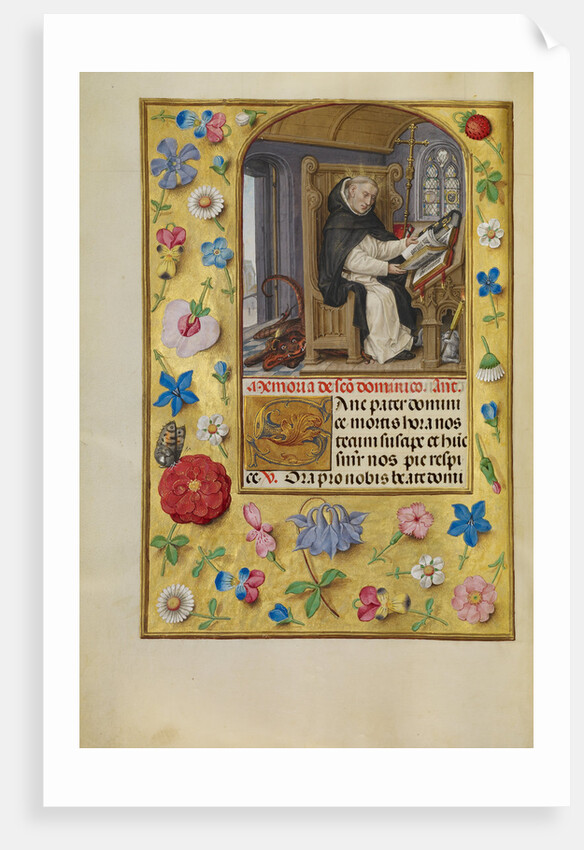 Memoria de sco dominico. Ant.
Sanc pater domini
ce mortis hora nos
tecum suscipe et hic
semper nos pie respi
ce. V. Ora pro nobis beate domi